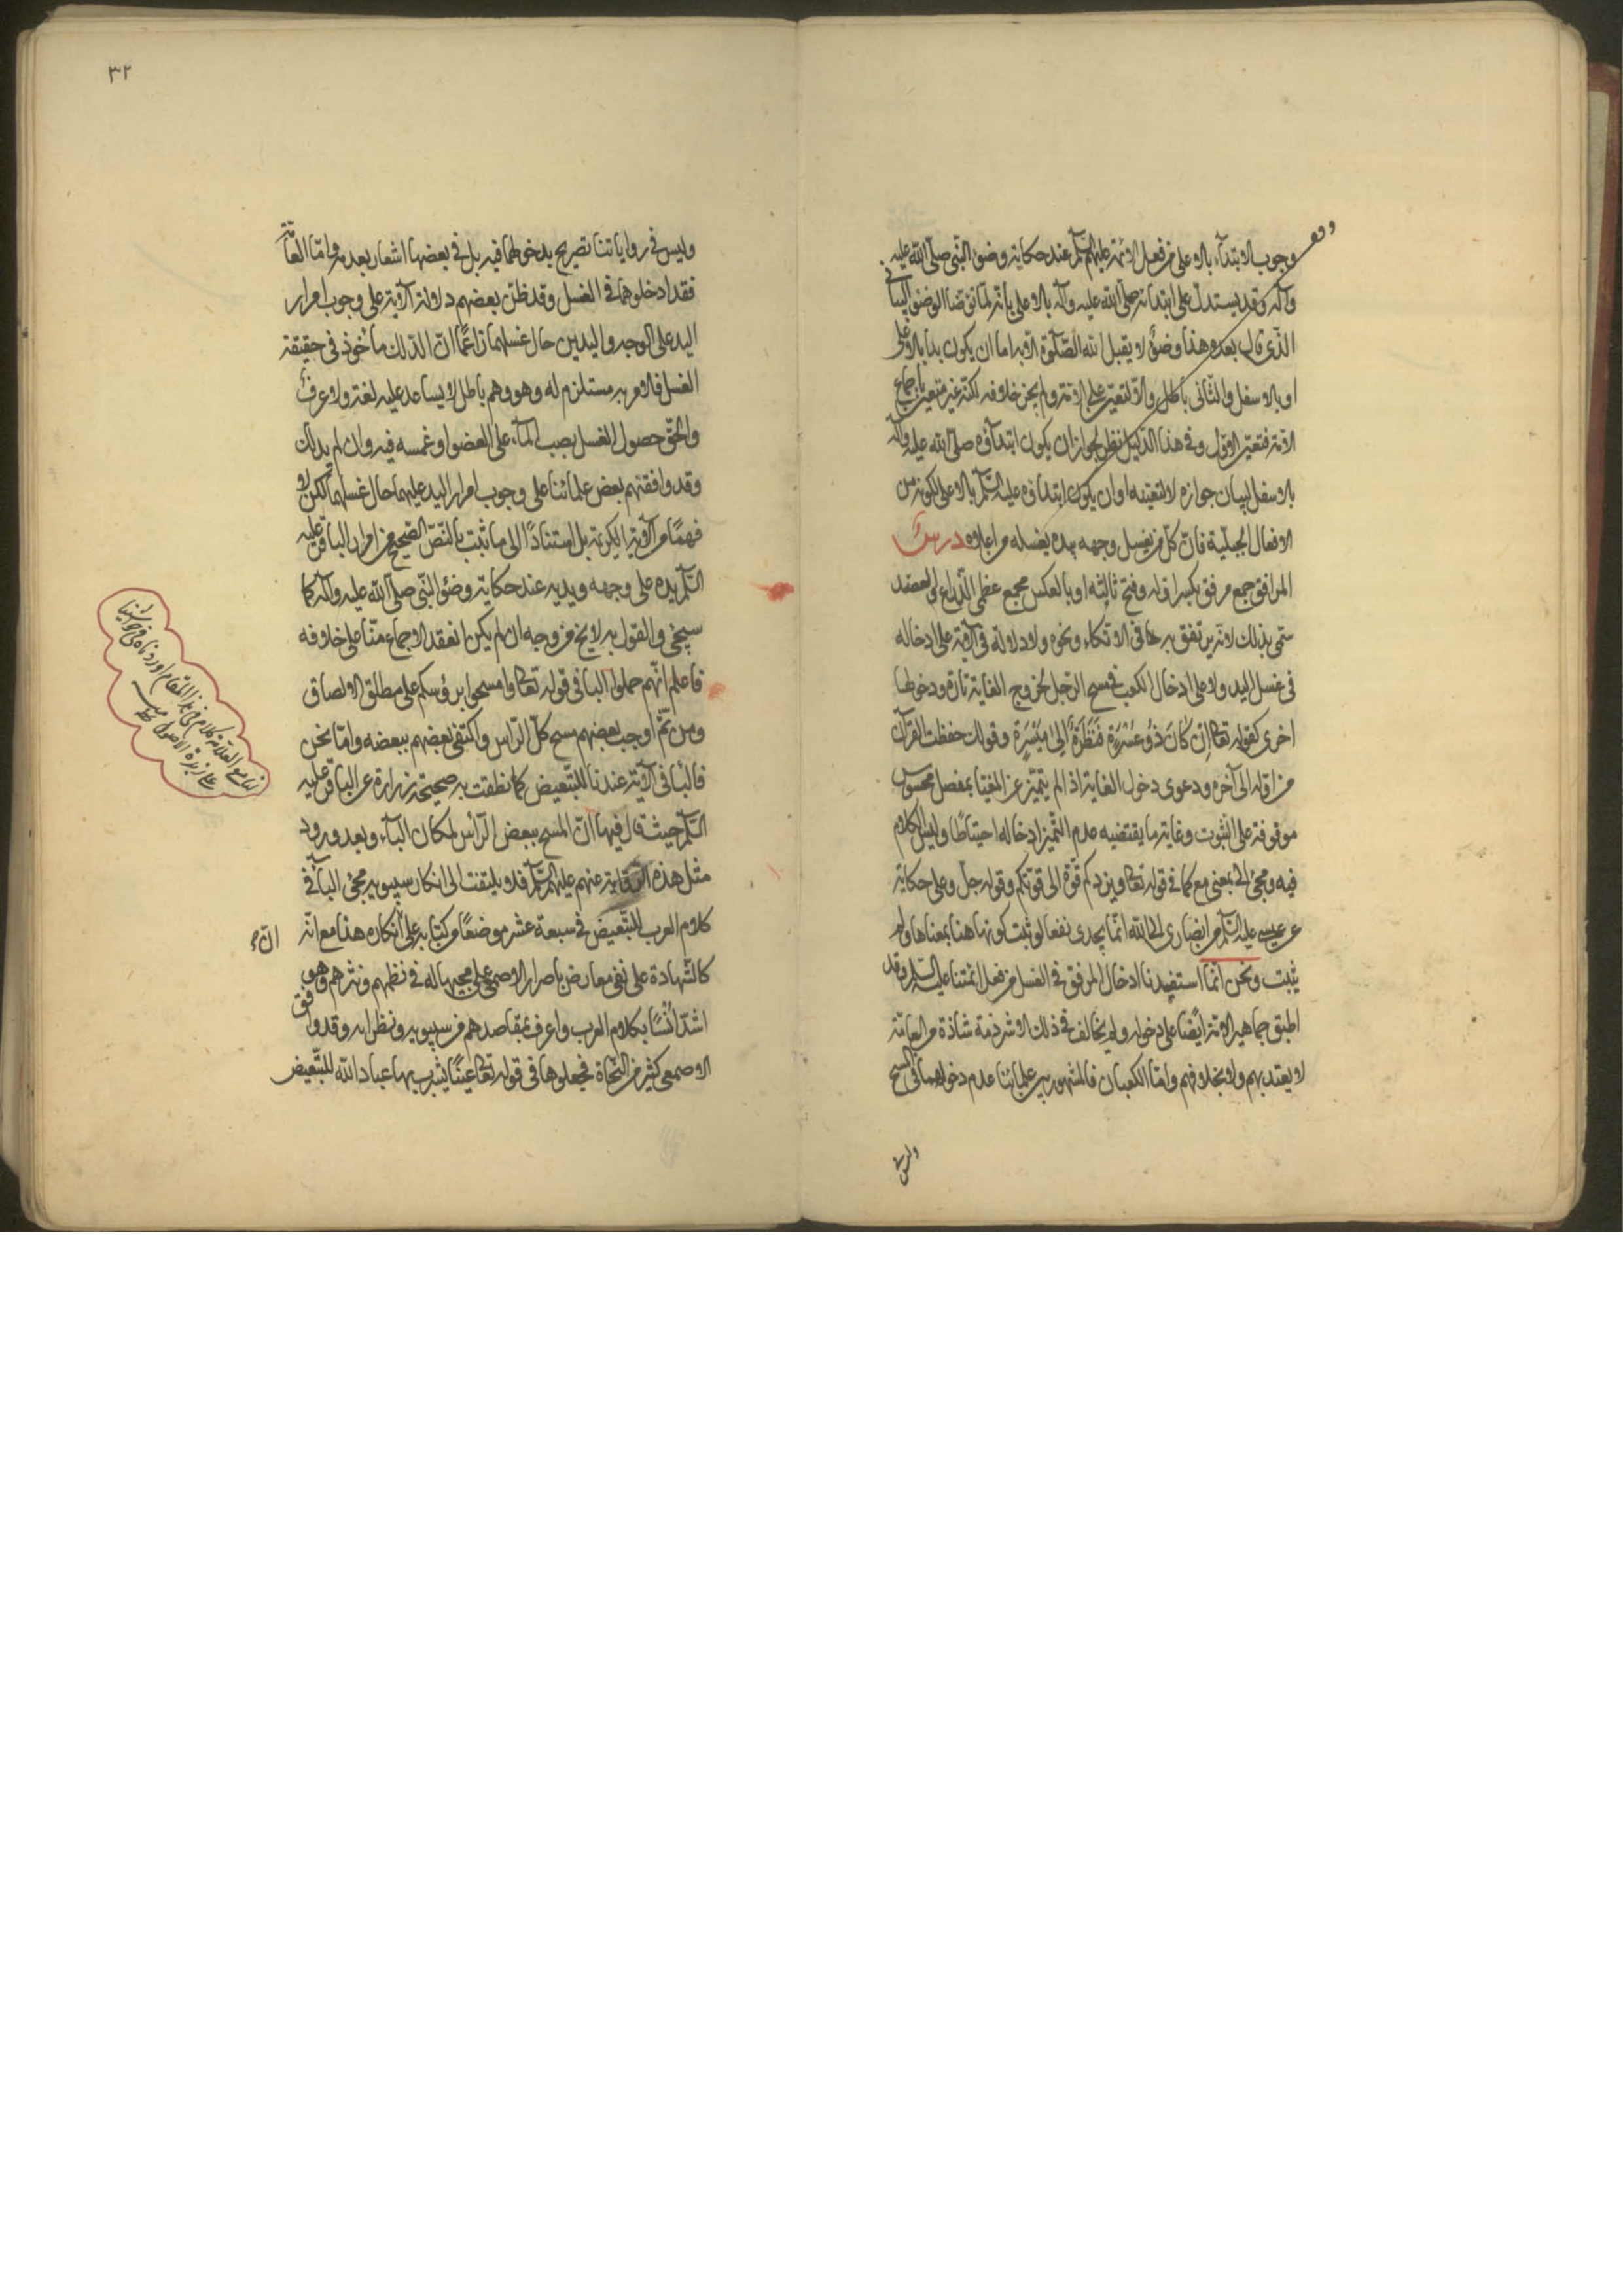 وجوب الابتداء بالاعلى من فعل الائمة عليهم السلم عند حكاية وضوء النبي صلى الله عليه
وآله وقد يستدل على ابتدائه صلى الله عليه وآله بالاعلى بانه لما توضا الوضوء البياني
الذي قال بعده هذا وضوء لا يقبل الله الصلوة الا به اما ان يكون بدا بالاعلى
او بالاسفل والثاني باطل والا لتعين على الامة ولم يجز خلافه لكنه غير متعين باجماع
الامة فتعين الاول وفي هذا الدليل نظر لجواز ان يكون ابتداؤه صلى الله عليه وآله
بالاسفل لبيان جوازه لا لتعينه او ان يكون ابتداؤه عليه السلم بالاعلى لكونه من
الافعال الجبلية فان كل من يغسل وجهه بيده يغسله من اعلاه درس
المرافق جمع مرفق بكسر اوله وفتح ثالثه او بالعكس مجمع عظمي الذراع والعضد
سمي بذلك لانه يرتفق به في الاتكاء ونحوه ولا دلالة في الآية على ادخاله
في غسل اليد ولا على ادخال الكعب في مسح الرجل لخروج الغاية تارة ودخولها
اخرى كقوله تعالى ان كَانَ ذُو عُسْرَةٍ فَنَظِرَةٌ اِلى مَيْسَرَةٍ وقولك حفظت القرآن
من اوله الى آخره ودعوى دخول الغاية اذا لم يتميز عن المغيا بمفصل محسوس
موقوفة على الثبوت وغاية ما يقتضيه عدم التميز ادخاله احتياطا وليس الكلام
فيه ومجئ الى بمعنى مع كما في قوله تعالى ويزدكم قوة الى قوتكم وقوله جل وعلى حكاية
عن عيسى عليه السلم من انصاري الى الله انما يجدى نفعا لو ثبت كونها هنا بمعناها ولم
يثبت ونحن انما استفيدنا ادخال المرفق في الغسل من فعل ائمتنا عليهم السلم وقد
اطبق جماهير الامة ايضا على دخوله ولم يخالف في ذلك الا شرذمة شاذة من العامة
لا يعتد بهم ولا بخلافهم واما الكعبان فالمشهور بين علمائنا عدم دخولهما في المسح
وليس في
٣٢
وليس في رواياتنا تصريح بدخولهما فيه بل في بعضها اشعار بعدمه واما العامة
فقد ادخلوهما في الغسل وقد ظن بعضهم دلالة الآية على وجوب امرار
اليد على الوجه واليدين حال غسلهما زاعما ان الدلك ماخوذ في حقيقة
الغسل فالامر به مستلزم له وهو وهم باطل لا يساعد عليه لغة ولا عرف
والحق حصول الغسل بصب الماء على العضو او غمسه فيه وان لم يدلك
وقد وافقهم بعض علمائنا على وجوب امرار اليد عليهما حال غسلهما لكن لا
فهما من الآية الكريمة بل استنادا الى ما ثبت بالنص الصحيح من امرار الباقر عليه
السلم يده على وجهه ويديه عند حكاية وضوء النبي صلى الله عليه وآله كما
سيجئ والقول به لا يخ من وجه ان لم يكن انعقد الاجماع منا على خلافه
فاعلم انهم حملوا البا في قوله تعالى وامسحوا برؤسكم على مطلق الالصاق
ومن ثم اوجب بعضهم مسح كل الراس واكتفى بعضهم ببعضه واما نحن
فالبا في الآية عندنا للتبعيض كما نطقت به صحيحة زرارة عن الباقر عليه
السلم حيث قال فيها ان المسح ببعض الراس لمكان الباء وبعد ورود
مثل هذه الرواية عنهم عليهم السلم فلا يلتفت الى انكار سيبويه مجئ البا في
كلام العرب للتبعيض في سبعة عشر موضعا من كتابه على ان انكاره هذا مع انه
كالشهادة على نفي معارض باصرار الاصمعي على مجيها له في نظمهم ونثرهم وهو
اشد انسا بكلام العرب واعرف بمقاصدهم من سيبويه ونظرائه وقد وافق
الاصمعي كثير من النحاة فجعلوها في قوله تعالى عينا يشرب بها عباد الله للتبعيض